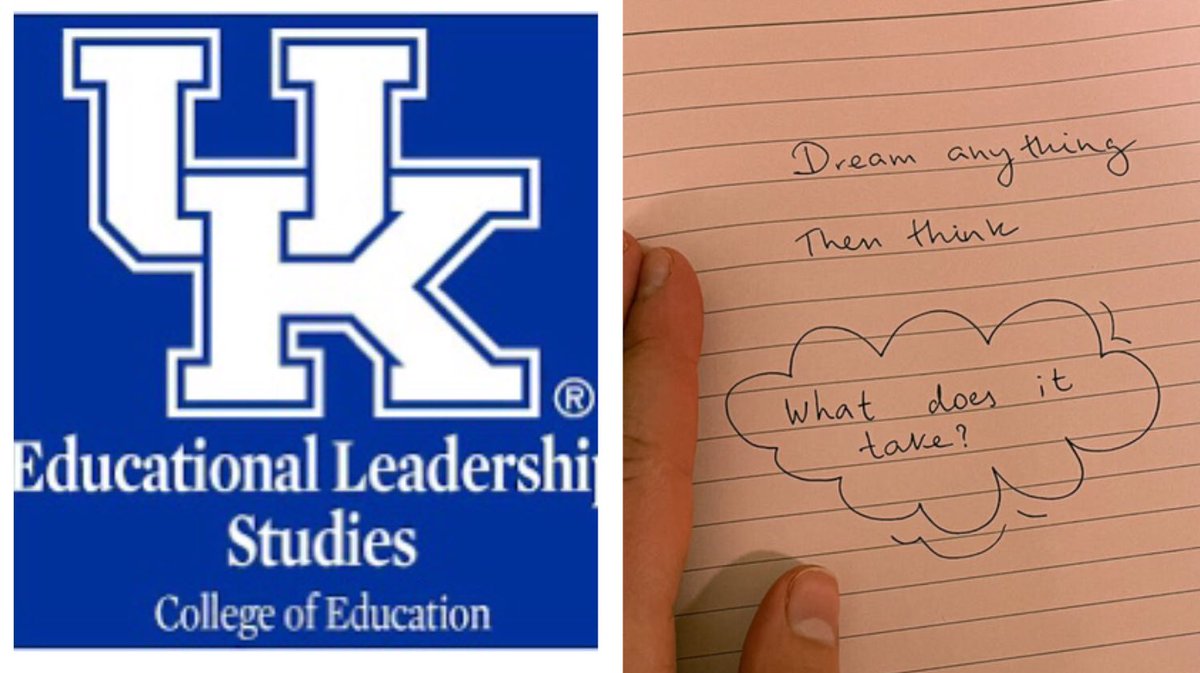 UK
®
Educational Leadershi
Studies
College of Education
Dream anything
Then think
What does it
take?